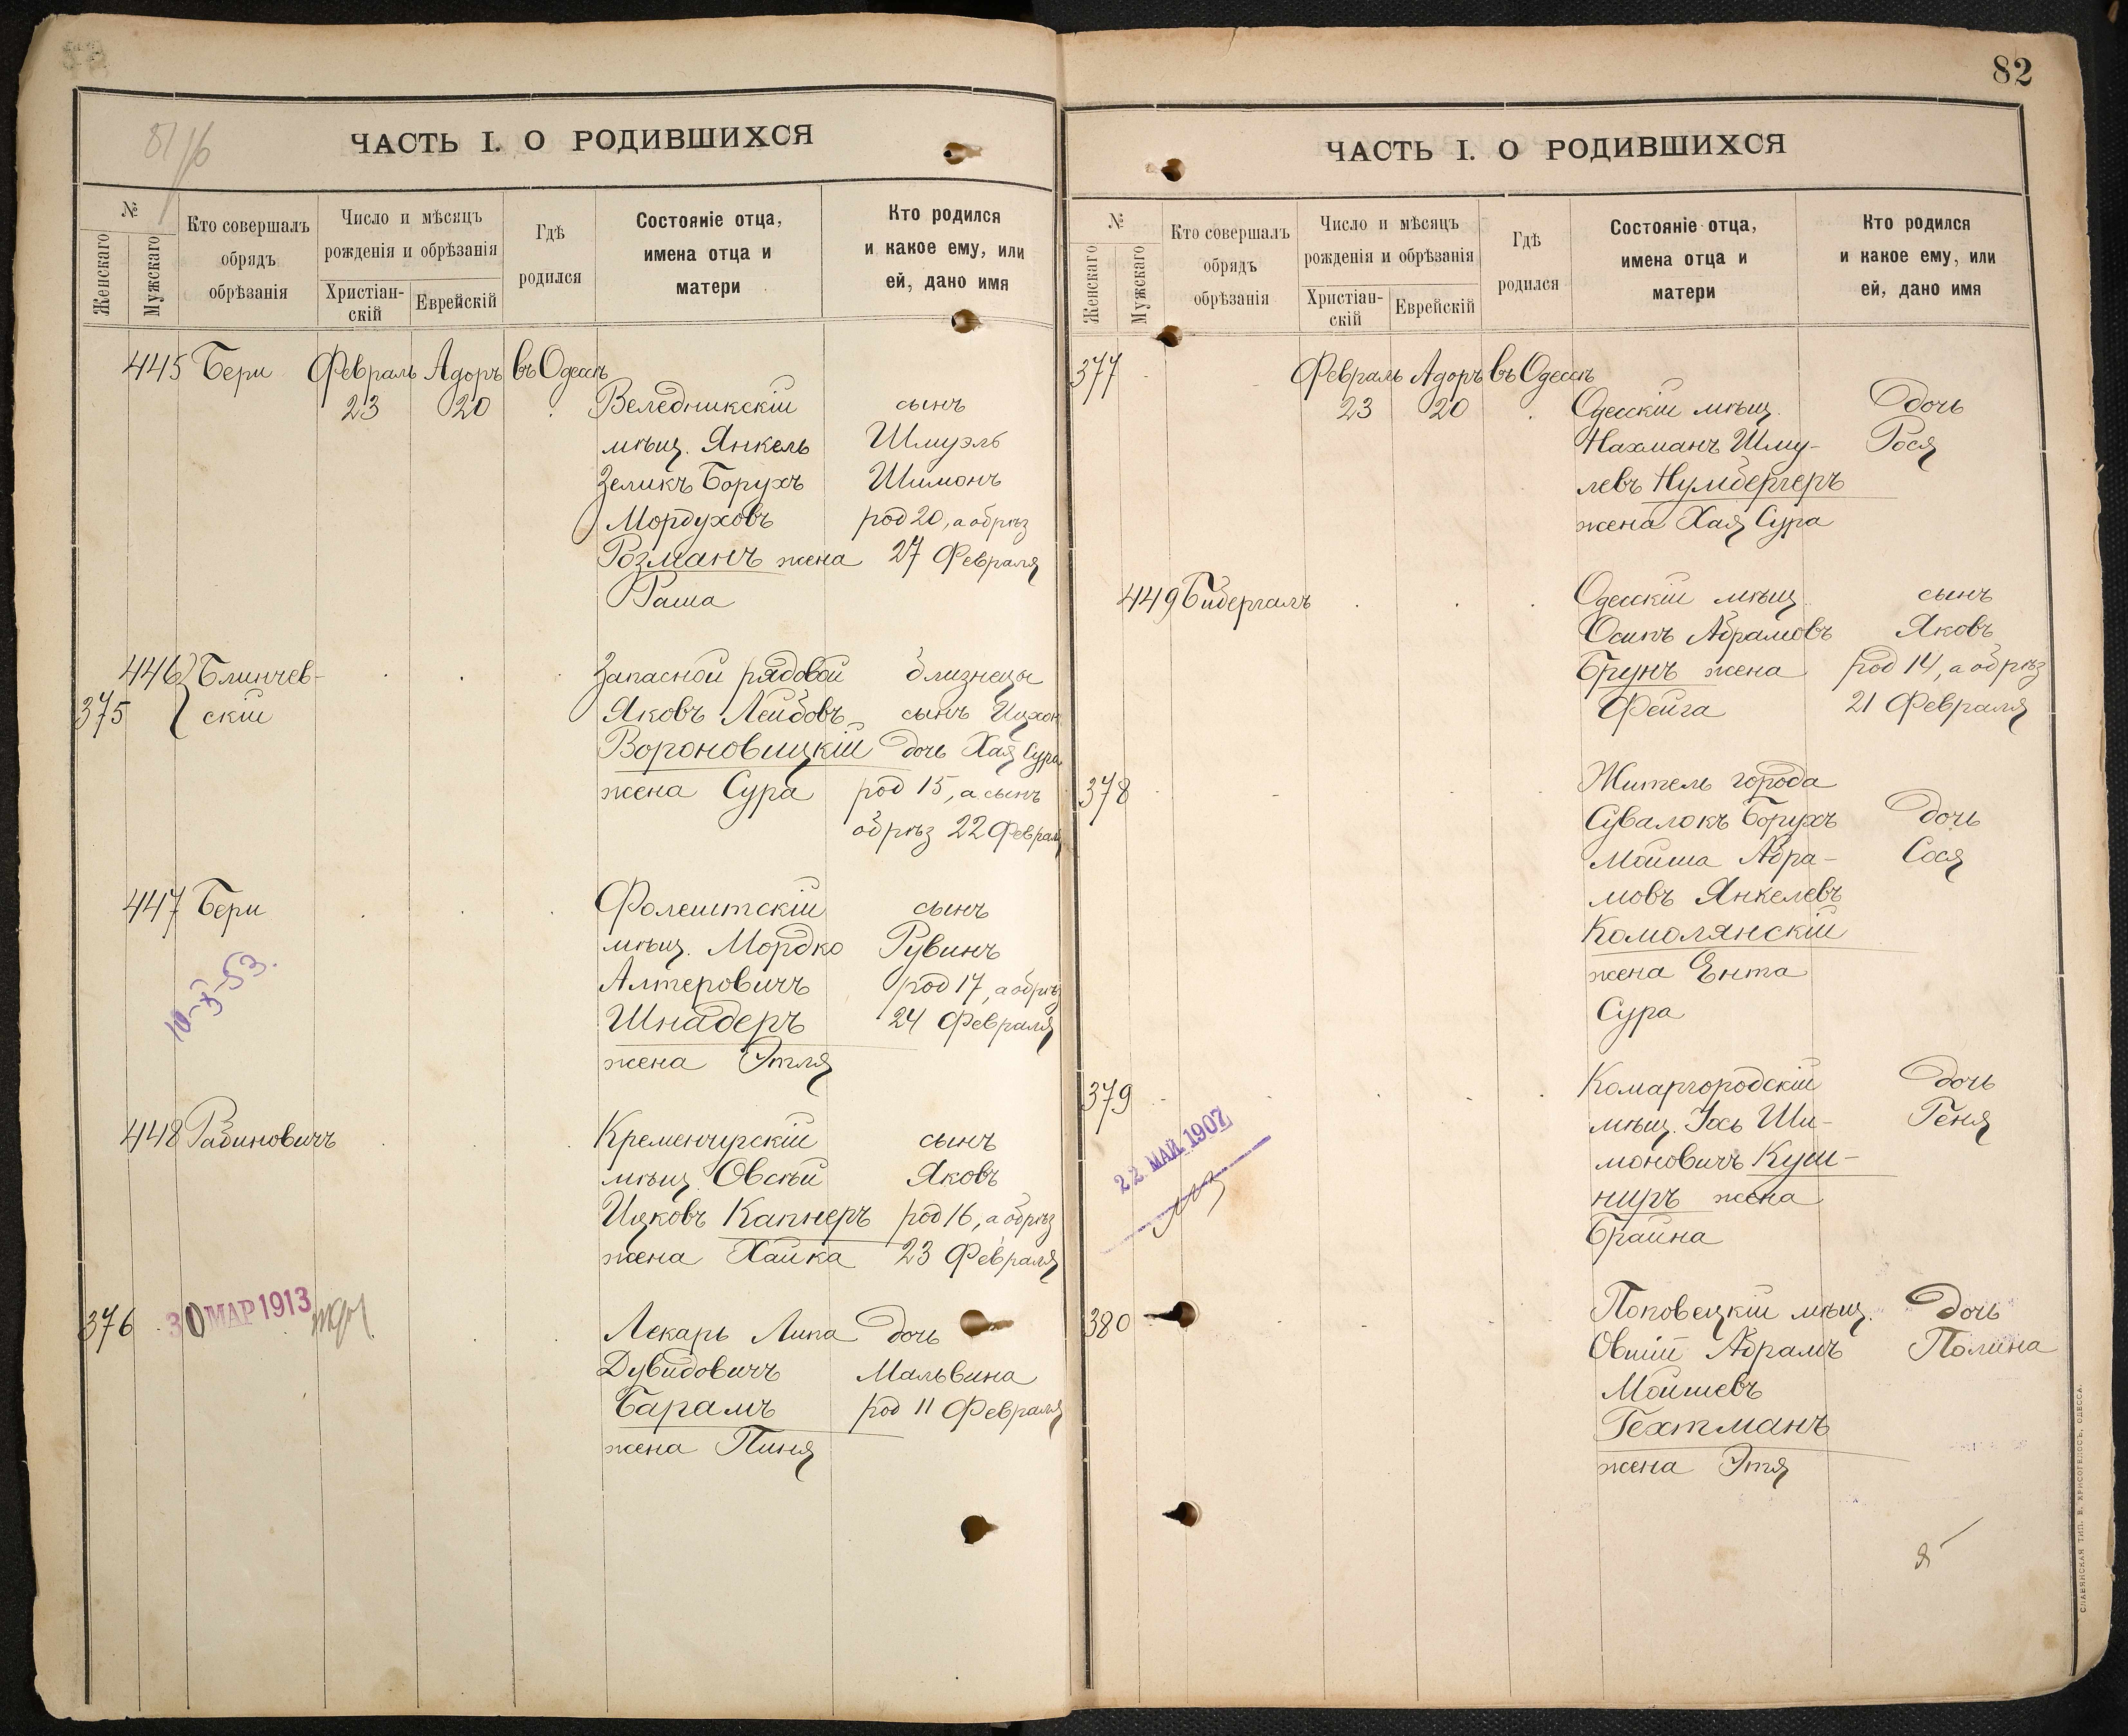 81 об
ЧАСТЬ I. О РОДИВШИХСЯ
№
Женскаго
Мужскаго
Кто совершалъ
обрядъ
обрѣзанія
Число и мѣсяцъ
рожденія и обрѣзанія
Христіан-
скій
Еврейскій
Гдѣ
родился
Состояніе отца,
имена отца и
матери
Кто родился
и какое ему, или
ей, дано имя
445 Бери Февраль Адоръ въ Одессѣ
23 20 Веледникскій сынъ
мѣщ. Янкель Шмуэль
Зеликъ Борухъ Шимонъ
Мордуховъ род 20, а обрѣз
Розманъ жена 27 Февраля
Раша
446 Блинчев- Запасной рядовой близнецы
375 скій Яковъ Лейбовъ сынъ Ицхок
Вороновицкій дочь Хая Сура
жена Сура род 15, а сынъ
обрѣз 22 Февраля
447 Бери Фолештскій сынъ
мѣщ. Мордко Рувинъ
10-X-53. Алтеровичъ род 17, а обрѣз
Шнадеръ 24 Февраля
жена Этля
448 Рабиновичъ Кременчугскій сынъ
мѣщ. Овсѣй Яковъ
Ицковъ Капнеръ род 16, а обрѣз
жена Хайка 23 Февраля
30 МАР 1913
376 Лекарь Липа дочь
Дувидовичъ Мальвина
Барамъ род 11 Февраля
жена Пиня
82
ЧАСТЬ I. О РОДИВШИХСЯ
№
Женскаго
Мужскаго
Кто совершалъ
обрядъ
обрѣзанія
Число и мѣсяцъ
рожденія и обрѣзанія
Христіан-
скій
Еврейскій
Гдѣ
родился
Состояніе отца,
имена отца и
матери
Кто родился
и какое ему, или
ей, дано имя
377 Февраль Адоръ въ Одессѣ
23 20 Одесскій мѣщ. дочь
Нахманъ Шму- Рося
левъ Нумбергеръ
жена Хая Сура
449 Бибергалъ Одесскій мѣщ. сынъ
Осипъ Абрамовъ Яковъ
Брунъ жена род 14, а обрѣз
Фейга 21 Февраля
Житель города
378 Сувалокъ Борухъ дочь
Мойша Абра- Сося
мовъ Янкелевъ
Комолянскій
жена Ента
Сура
379 Комаргородскій дочь
мѣщ. Іось Ши- Геня
22 МАЙ 1907
моновичъ Куш-
ниръ жена
Брайна
380 Поповецкій мѣщ. дочь
Овшій Абрамъ Полина
Мойшевъ
Гехтманъ
жена Этя
СЛАВЯНСКАЯ ТИП. Н. ХРИСОГЕЛОСЪ. ОДЕССА.